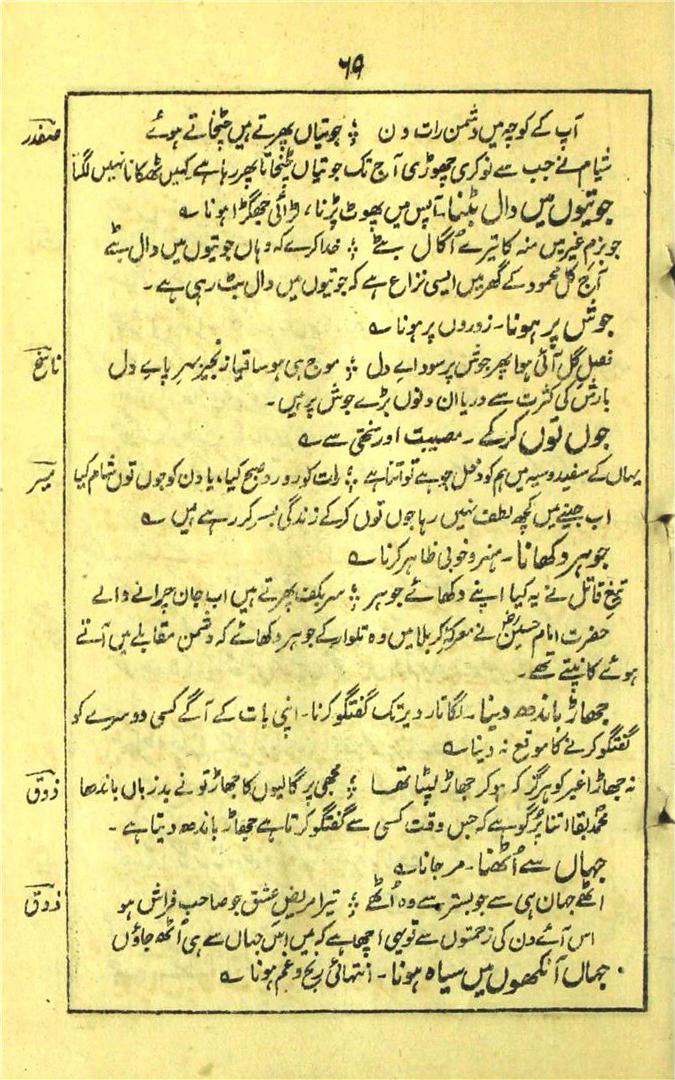 ۶۹
آپ کے کوچہ میں دشمن رات دن ؛ جوتیاں پھرتے ہیں چٹخاتے ہوئے صفدر
شیام نے جب سے نوکری چھوڑی آج تک جوتیاں چٹخاتا پھر رہا ہے کہیں ٹھکانا نہیں لگتا
جوتیوں میں دال بٹنا۔ آپس میں پھوٹ پڑنا، لڑائی جھگڑا ہونا ؎
جو بزم غیر میں منہ کا تیرے اُگال بٹے ؛ خدا کرے کہ وہاں جوتیوں میں دال بٹے
آج کل محمود کے گھر میں ایسی نزاع ہے کہ جوتیوں میں دال بٹ رہی ہے۔
جوش پر ہونا۔ زوروں پر ہونا ؎
فصلِ گل آئی ہوا پھر جوش پر سوداے دل ؛ موج ہی ہو ساقیا زنجیر بہر پاے دل ناسخ
بارش کی کثرت سے دریا ان دنوں بڑے جوش پر ہیں۔
جوں توں کرکے۔ مصیبت اور سختی سے ؎
یہاں کے سفید و سیہ میں ہم کو دخل جو ہے تو اتنا ہے ؛ رات کو رو رو صبح کیا، یا دن کو جوں توں شام کیا میر
اب جینے میں کچھ لطف نہیں رہا جوں توں کرکے زندگی بسر کر رہے ہیں ؎
جوہر دکھانا۔ ہنر و خوبی ظاہر کرنا ؎
تیغ قاتل نے یہ کیا اپنے دکھائے جوہر ؛ سر بکف پھرتے ہیں اب جان چرانے والے
حضرت امام حسینؓ نے معرکۂ کربلا میں وہ تلوار کے جوہر دکھائے کہ دشمن مقابلے میں آتے
ہوئے کانپتے تھے۔
جھاڑ باندھ دینا۔ لگاتار دیر تک گفتگو کرنا۔ اپنی بات کے آگے کسی دوسرے کو
گفتگو کرنے کا موقع نہ دینا ؎
نہ جھاڑا غیر کو ہرگز کہ ہو کر جھاڑ لپٹا تھا ؛ مجھی پر گالیوں کا جھاڑ تو نے بدزباں باندھا ذوق
محمد بقا اتنا پُرگو ہے کہ جس وقت کسی سے گفتگو کرتا ہے جھاڑ باندھ دیتا ہے۔
جہاں سے اُٹھنا۔ مر جانا ؎
اٹھے جہان ہی سے جو بستر سے وہ اُٹھے ؛ تیرا مریضِ عشق جو صاحب فراش ہو ذوق
اس آئے دن کی زحمتوں سے تو یہی اچھا ہے کہ میں اس جہاں سے ہی اُٹھ جاؤں
جہاں آنکھوں میں سیاہ ہونا۔ انتہائی رنج و غم ہونا ؎